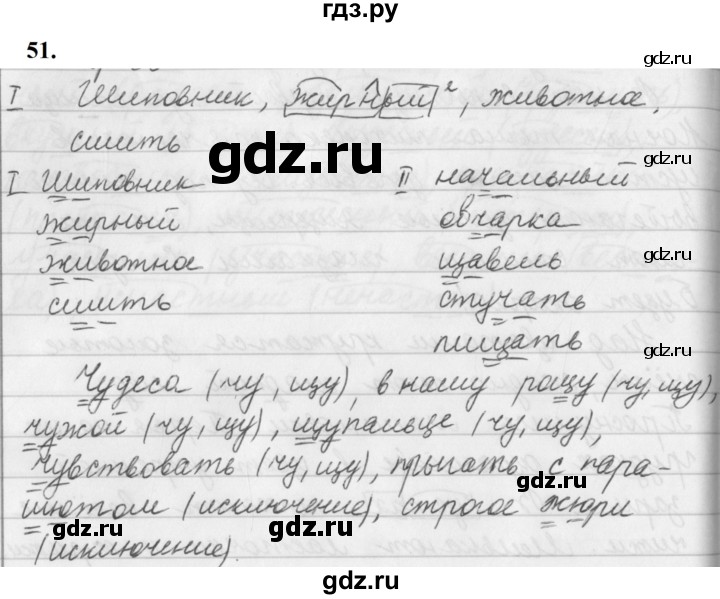 гдз.ру
51.
gdz.ru
I Шиповник, жирный², животное,
сшить
gdz.ru
I Шиповник II начальный
жирный овчарка
животное щавель
gdz.ru
сшить стучать
gdz.ru
пищать
gdz.ru
Чудеса (чу, щу), в нашу рощу (чу, щу),
чужой (чу, щу), щупальце (чу, щу),
чувствовать (чу, щу), прыгать с пара-
gdz.ru
шютом (исключение), строгое жюри
gdz.ru
gdz.ru
(исключение).
gdz.ru